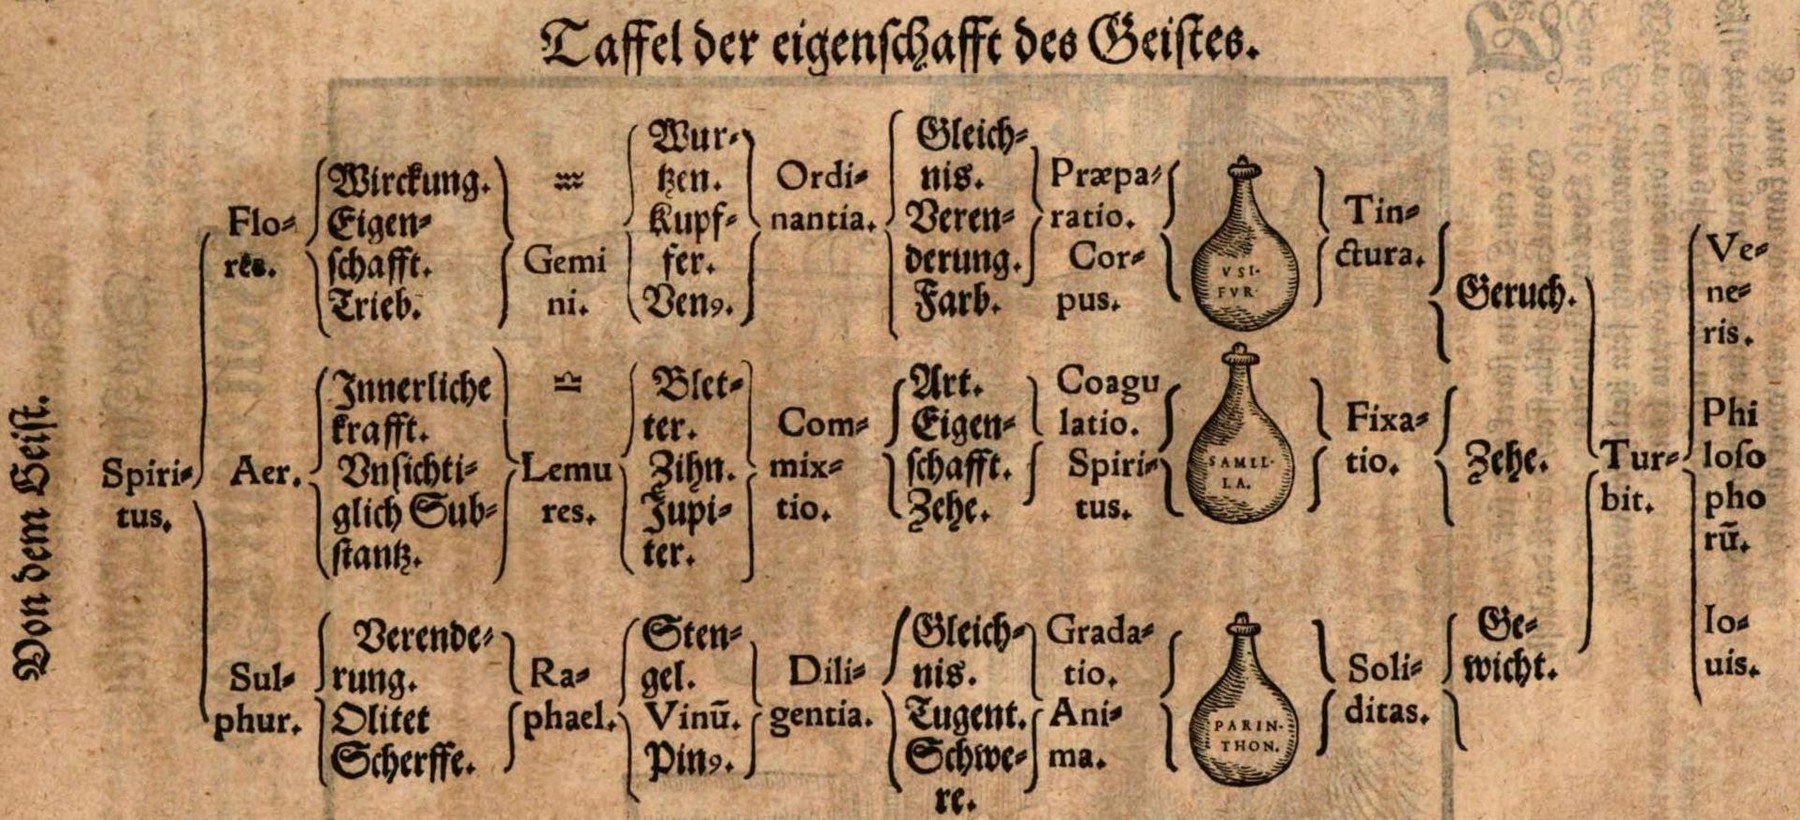 Taffel der eigenschafft des Geistes.
Von dem Geist.
Spiri⸗
tus.
Flo⸗
res.
Wirckung.
Eigen⸗
schafft.
Trieb.
♒
Gemi
ni.
Wur⸗
tzen.
Kupf⸗
fer.
Venꝰ.
Ordi⸗
nantia.
Gleich⸗
nis.
Veren⸗
derung.
Farb.
Præpa⸗
ratio.
Cor⸗
pus.
VSI⸗
FVR.
Tin⸗
ctura.
Geruch.
Aer.
Innerliche
krafft.
Vnsichti⸗
glich Sub⸗
stantz.
♎
Lemu
res.
Blet⸗
ter.
Zihn.
Jupi⸗
ter.
Com⸗
mix⸗
tio.
Art.
Eigen⸗
schafft.
Zehe.
Coagu
latio.
Spiri⸗
tus.
SAMIL⸗
LA.
Fixa⸗
tio.
Zehe.
Sul⸗
phur.
Verende⸗
rung.
Olitet
Scherffe.
Ra⸗
phael.
Sten⸗
gel.
Vinū.
Pinꝰ.
Dili⸗
gentia.
Gleich⸗
nis.
Tugent.
Schwe⸗
re.
Grada⸗
tio.
Ani⸗
ma.
PARIN⸗
THON.
Soli⸗
ditas.
Ge⸗
wicht.
Tur⸗
bit.
Ve⸗
ne⸗
ris.
Phi
loso
pho
rū.
Io⸗
uis.